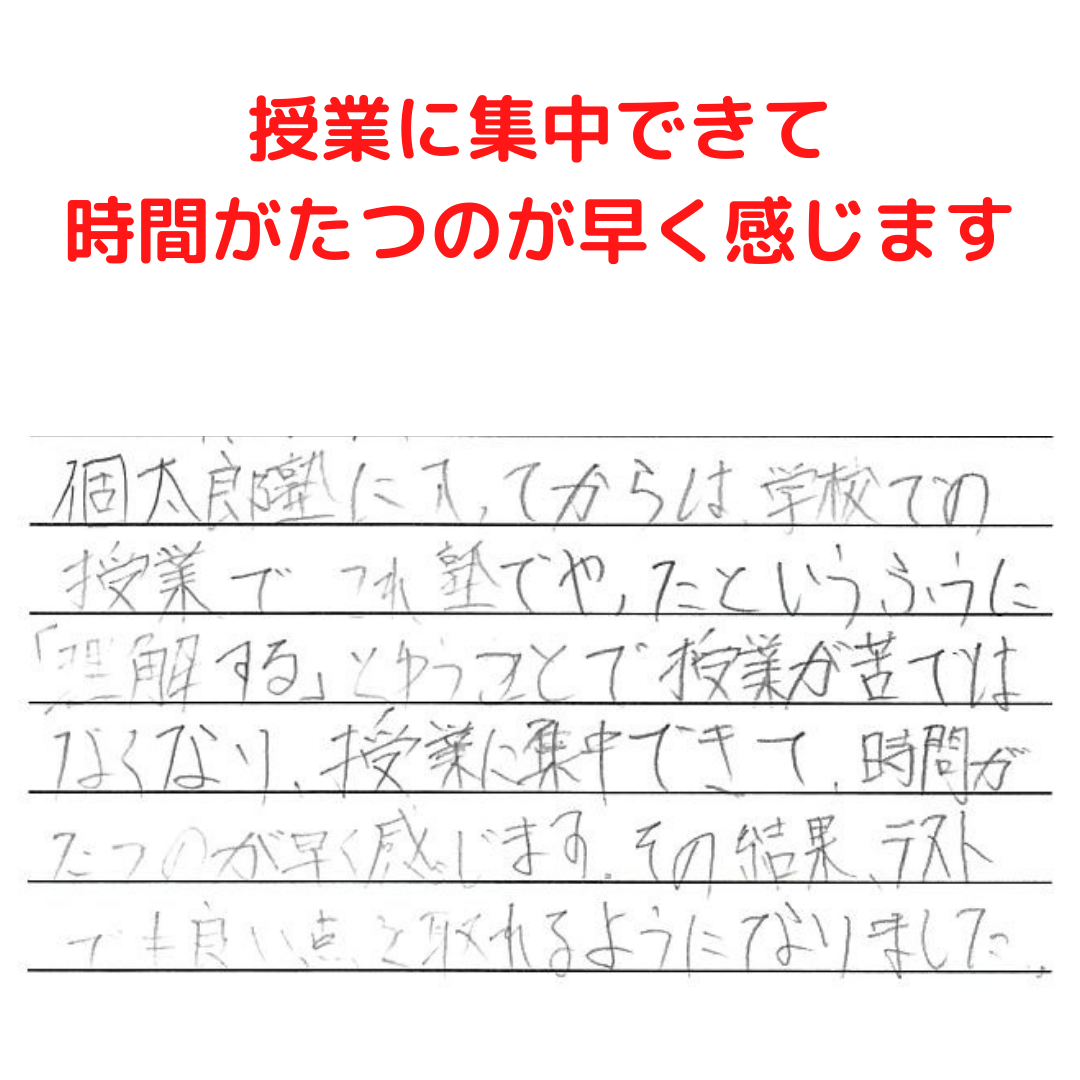 授業に集中できて
時間がたつのが早く感じます
個太郎塾に入ってからは、学校での
授業で「これ塾でやったというふうに
「理解する」とゆうことで授業が苦では
なくなり、授業に集中できて、時間が
たつのが早く感じます。その結果、テスト
でも良い点を取れるようになりました。